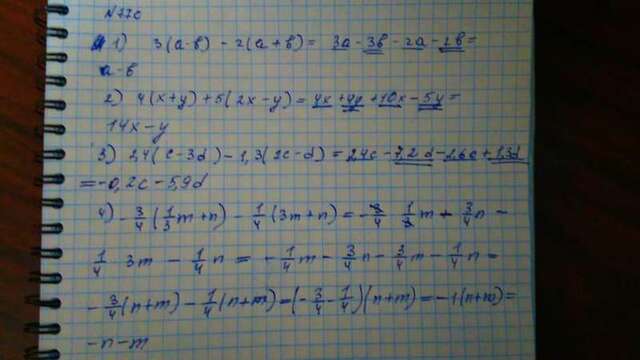 №770
1) 3(a-b) - 2(a+b) = 3a - 3b - 2a - 2b =
a-b
2) 4(x+y) + 5(2x-y) = 4x + 4y + 10x - 5y =
14x - y
3) 2,4(c-3d) - 1,3(2c-d) = 2,4c - 7,2d - 2,6c + 1,3d
= -0,2c - 5,9d
4) -3/4(1/3m+n) - 1/4(3m+n) = -3/4 1/3m + 3/4n -
1/4 3m - 1/4n = -1/4m - 3/4n - 3/4m - 1/4n =
-3/4(n+m) - 1/4(n+m) = (-3/4-1/4)(n+m) = -1(n+m) =
-n-m